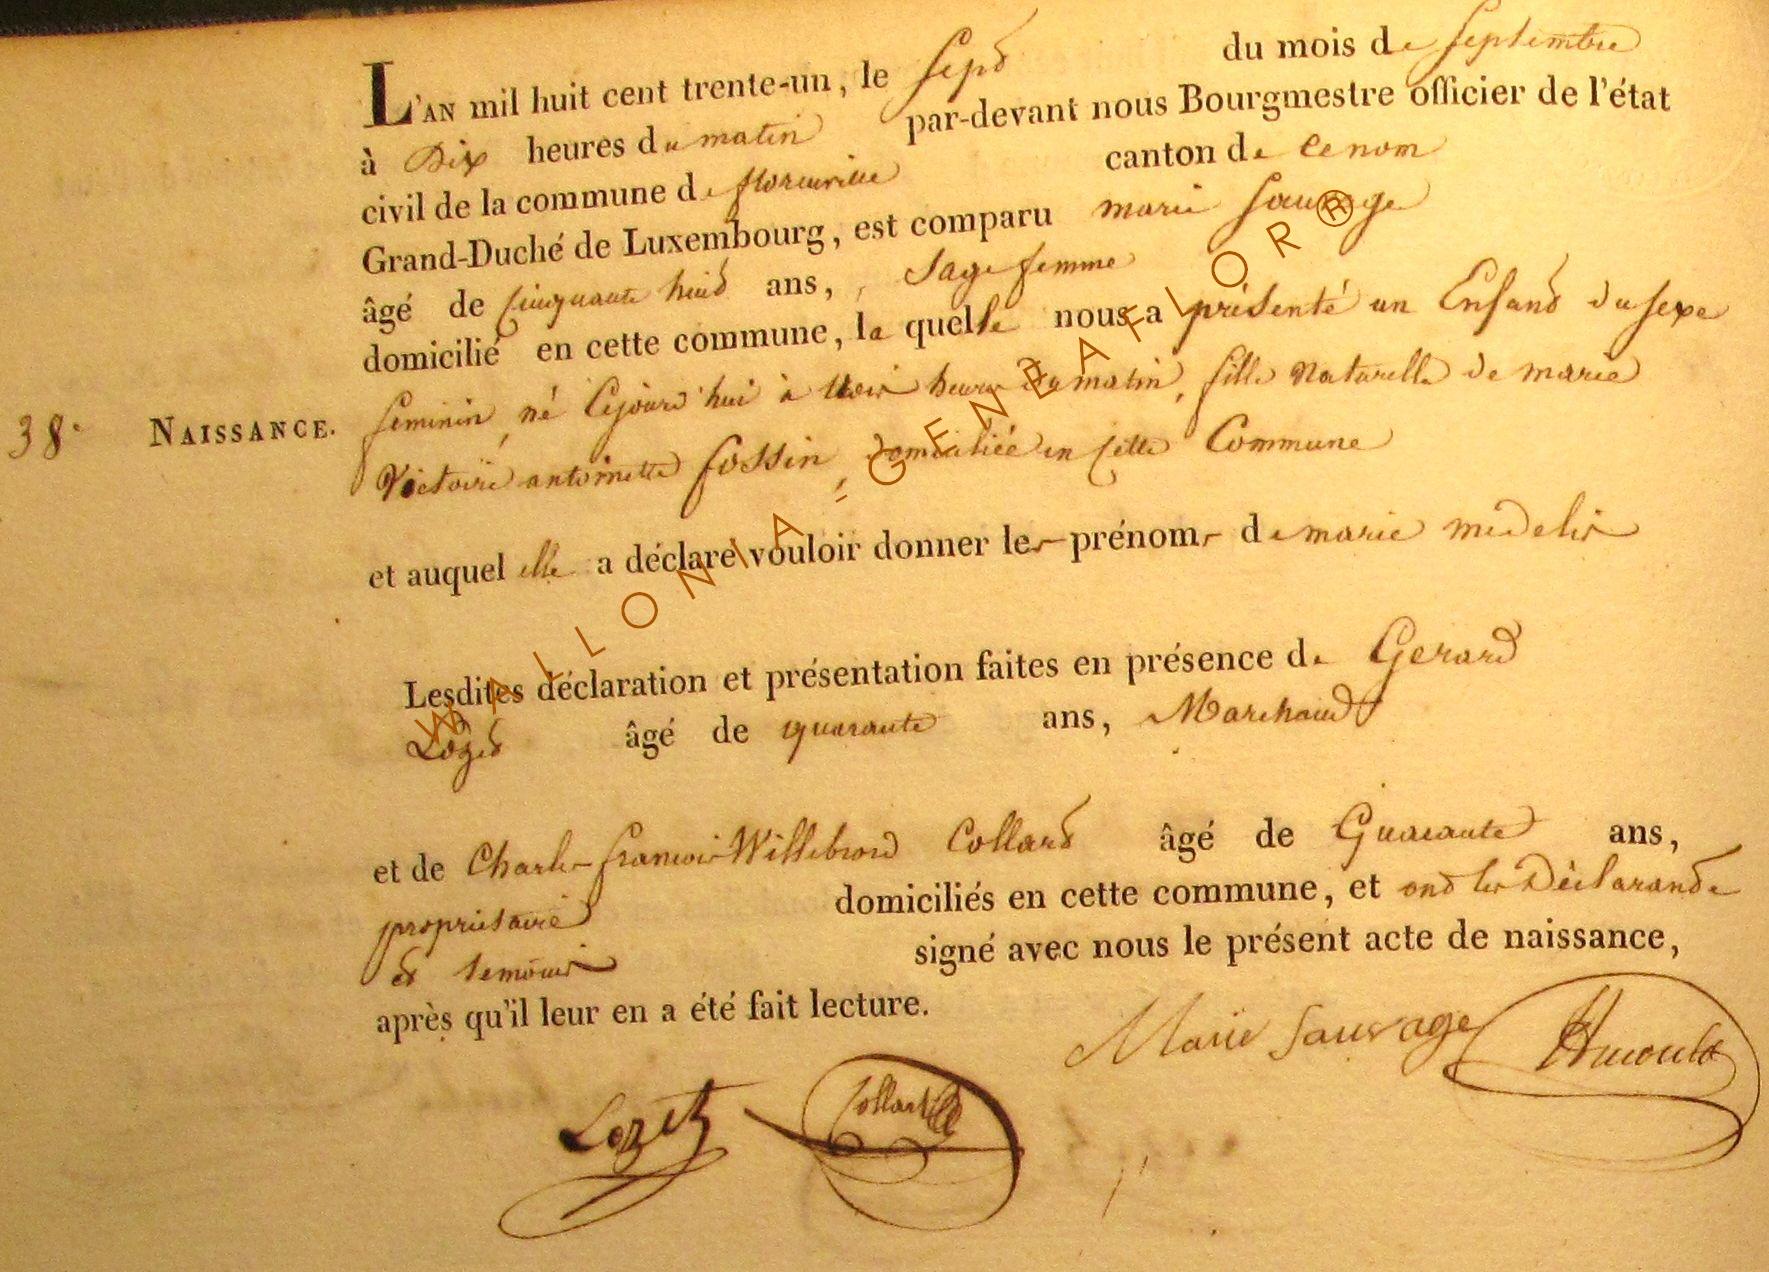 L'AN mil huit cent trente-un, le sept du mois de septembre
à Dix heures du matin par-devant nous Bourgmestre officier de l'état
civil de la commune de florenville canton de ce nom
Grand-Duché de Luxembourg, est comparu marie Sauvage
âgé de cinquante huit ans, Sage femme
domicilié en cette commune, la quelle nous a présenté un Enfant du sexe
38e NAISSANCE. feminin, né Cejourd'hui à trois heures du matin, fille Naturelle de marie
Victoire antoinette fossin, domiciliée en cette Commune
et auquel elle a déclaré vouloir donner les prénoms de marie
Lesdites déclaration et présentation faites en présence de Gerard
Lozet âgé de quarante ans, Marchand
et de Charles francois Willebrord Collard âgé de Quarante ans,
propriétaire domiciliés en cette commune, et ont les Déclarante
et temoins signé avec nous le présent acte de naissance,
après qu'il leur en a été fait lecture.
Marie Sauvage
Lozet Collard
WALLONIA - GENEAFLOR®